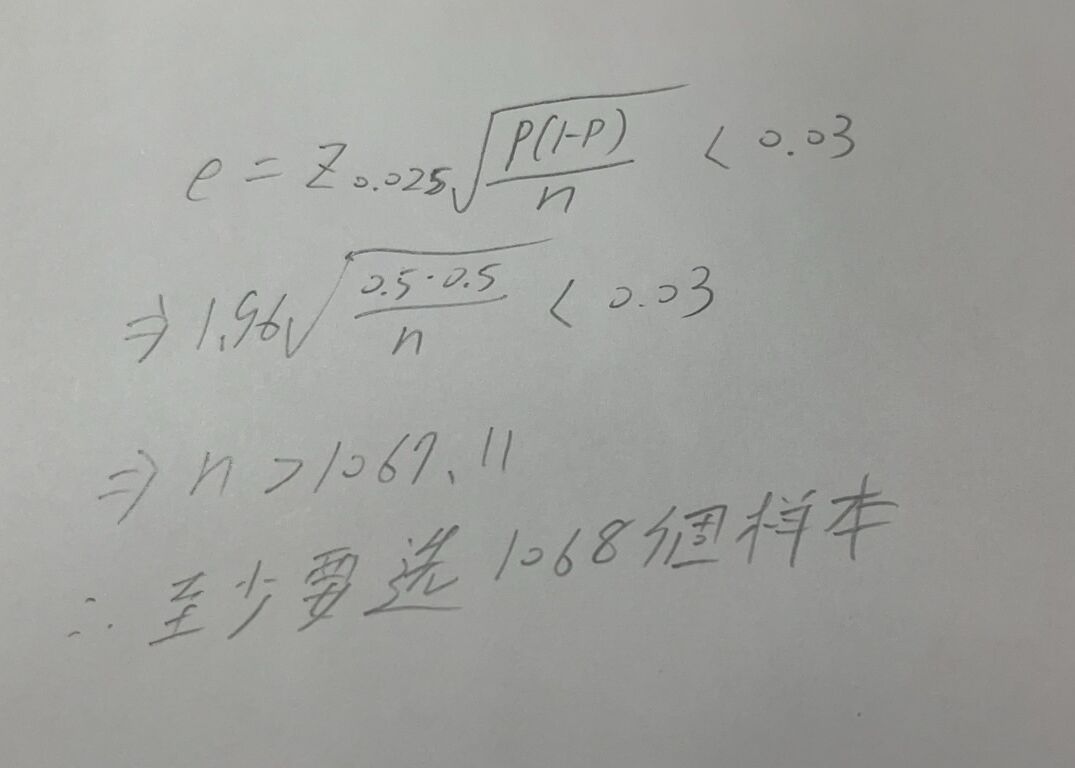 e = Z₀.₀₂₅ √(P(1-P)/n) < 0.03
⇒ 1.96 √(0.5·0.5/n) < 0.03
⇒ n > 1067.11
∴ 至少要选 1068 個样本